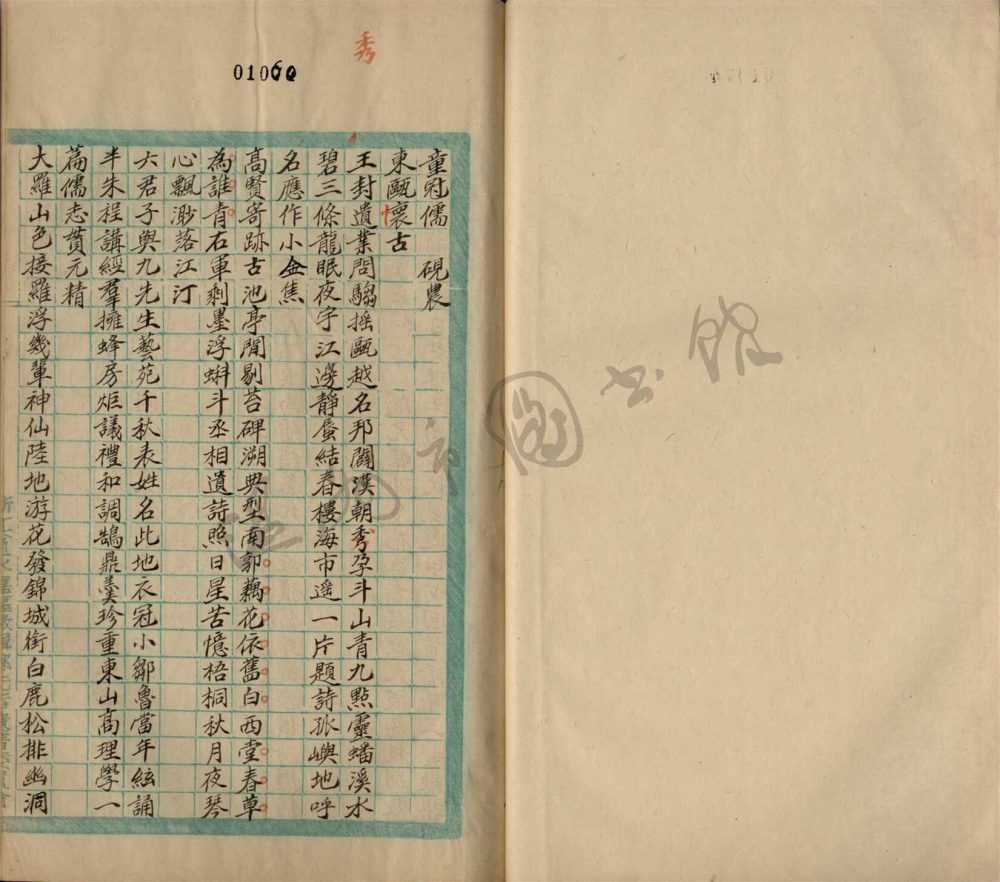 秀
01060
童冠儒　硯農
東甌懷古
王封遺業問騶搖甌越名邦闢漢朝秀孕斗山青九點靈蟠溪水
碧三條龍眠夜宇江邊靜蜃結春樓海市遥一片題詩孤嶼地呼
名應作小金焦
高賢寄跡古池亭閒剔苔碑溯典型南郭藕花依舊白西堂春草
為誰青右軍剩墨浮蝌斗丞相遺詩照日星苦憶梧桐秋月夜琴
心飄渺落江汀
六君子與九先生藝苑千秋表姓名此地衣冠小鄒魯當年絃誦
半朱程講經羣擁蜂房炬議禮和調鵠鼎羹珍重東山高理學一
篇儒志貫元精
大羅山色接羅浮幾輩神仙陸地游花發錦城街白鹿松排幽洞
圖書館